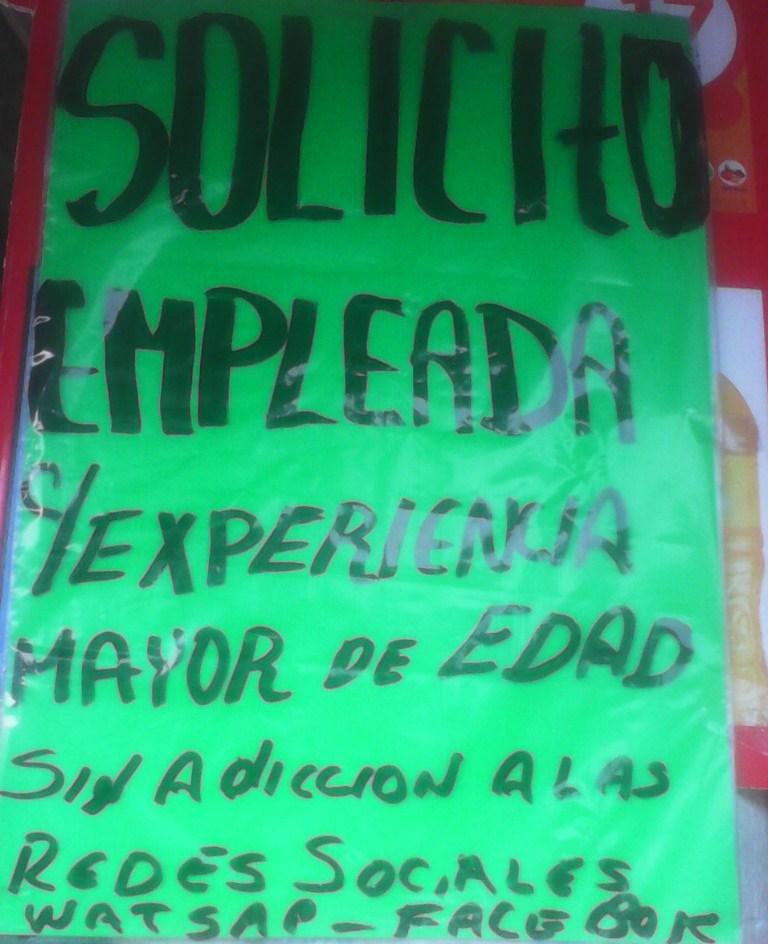 SOLICItO
EMPLEADA
C/EXPERIENCIA
MAYOR DE EDAD
SIN ADICCION A LAS
REDES SOCIALES
WATSAP - FACEBOOK